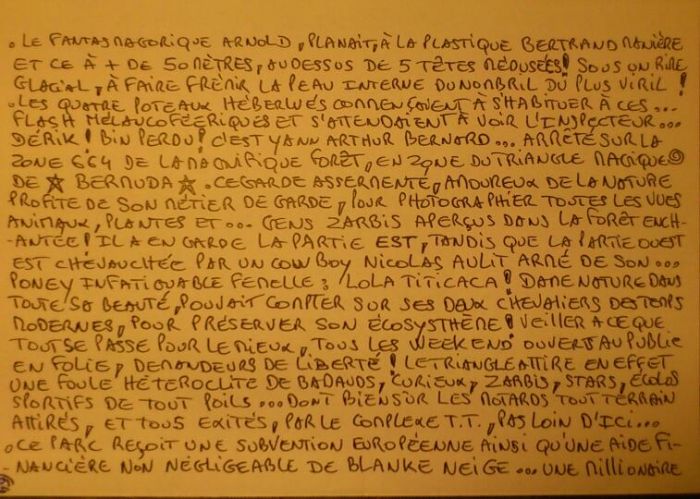 . LE FANTASMAGORIQUE ARNOLD, PLANAIT, À LA PLASTIQUE BERTRAND MANIÈRE
ET CE À + DE 50 MÈTRES, AU DESSUS DE 5 TÊTES MÉDUSÉES! SOUS UN RIRE
GLACIAL, À FAIRE FRÉMIR LA PEAU INTERNE DU NOMBRIL DU PLUS VIRIL!
. LES QUATRE POTEAUX HÉBERLUÉS COMMENÇOIENT À S'HABITUER À CES...
FLASH MÉLANCOFÉERIQUES ET S'ATTENDAIENT À VOIR L'INSPECTEUR...
DÉRIK! BIN PERDU! C'EST YANN ARTHUR BERNARD... ARRÊTÉ SUR LA
ZONE 664 DE LA MAGNIFIQUE FORÊT, EN ZONE DU TRIANGLE MAGIQUE
DE ☆ BERMUDA ☆. CE GARDE ASSERMENTÉ, AMOUREUX DE LA NATURE
PROFITE DE SON MÉTIER DE GARDE, POUR PHOTOGRAPHIER TOUTES LES VUES
ANIMAUX, PLANTES ET... GENS ZARBIS APERÇUS DANS LA FORÊT ENCH-
-ANTÉE! IL A EN GARDE LA PARTIE EST, TANDIS QUE LA PARTIE OUEST
EST CHEVAUCHÉE PAR UN COW BOY NICOLAS AULIT ARMÉ DE SON...
PONEY INFATIQUABLE FEMELLE: LOLA TITICACA! DAME NATURE DANS
TOUTE SA BEAUTÉ, POUVAIT COMPTER SUR SES DEUX CHEVALIERS DES TEMPS
MODERNES, POUR PRÉSERVER SON ÉCOSYSTHÈME! VEILLER A CE QUE
TOUT SE PASSE POUR LE MIEUX, TOUS LES WEEK END OUVERTS AU PUBLIC
EN FOLIE, DEMANDEURS DE LIBERTÉ! LE TRIANGLE ATTIRE EN EFFET
UNE FOULE HÉTÉROCLITE DE BADAUDS, CURIEUX, ZARBIS, STARS, ÉCOLOS
SPORTIFS DE TOUT POILS... DONT BIEN SUR LES MOTARDS TOUT TERRAIN
ATTIRÉS, ET TOUS EXITÉS, PAR LE COMPLEXE T.T., PAS LOIN D'ICI...
. CE PARC REÇOIT UNE SUBVENTION EUROPÉENNE AINSI QU'UNE AIDE FI-
-NANCIÈRE NON NÉGLIGEABLE DE BLANKE NEIGE... UNE MILLIONAIRE